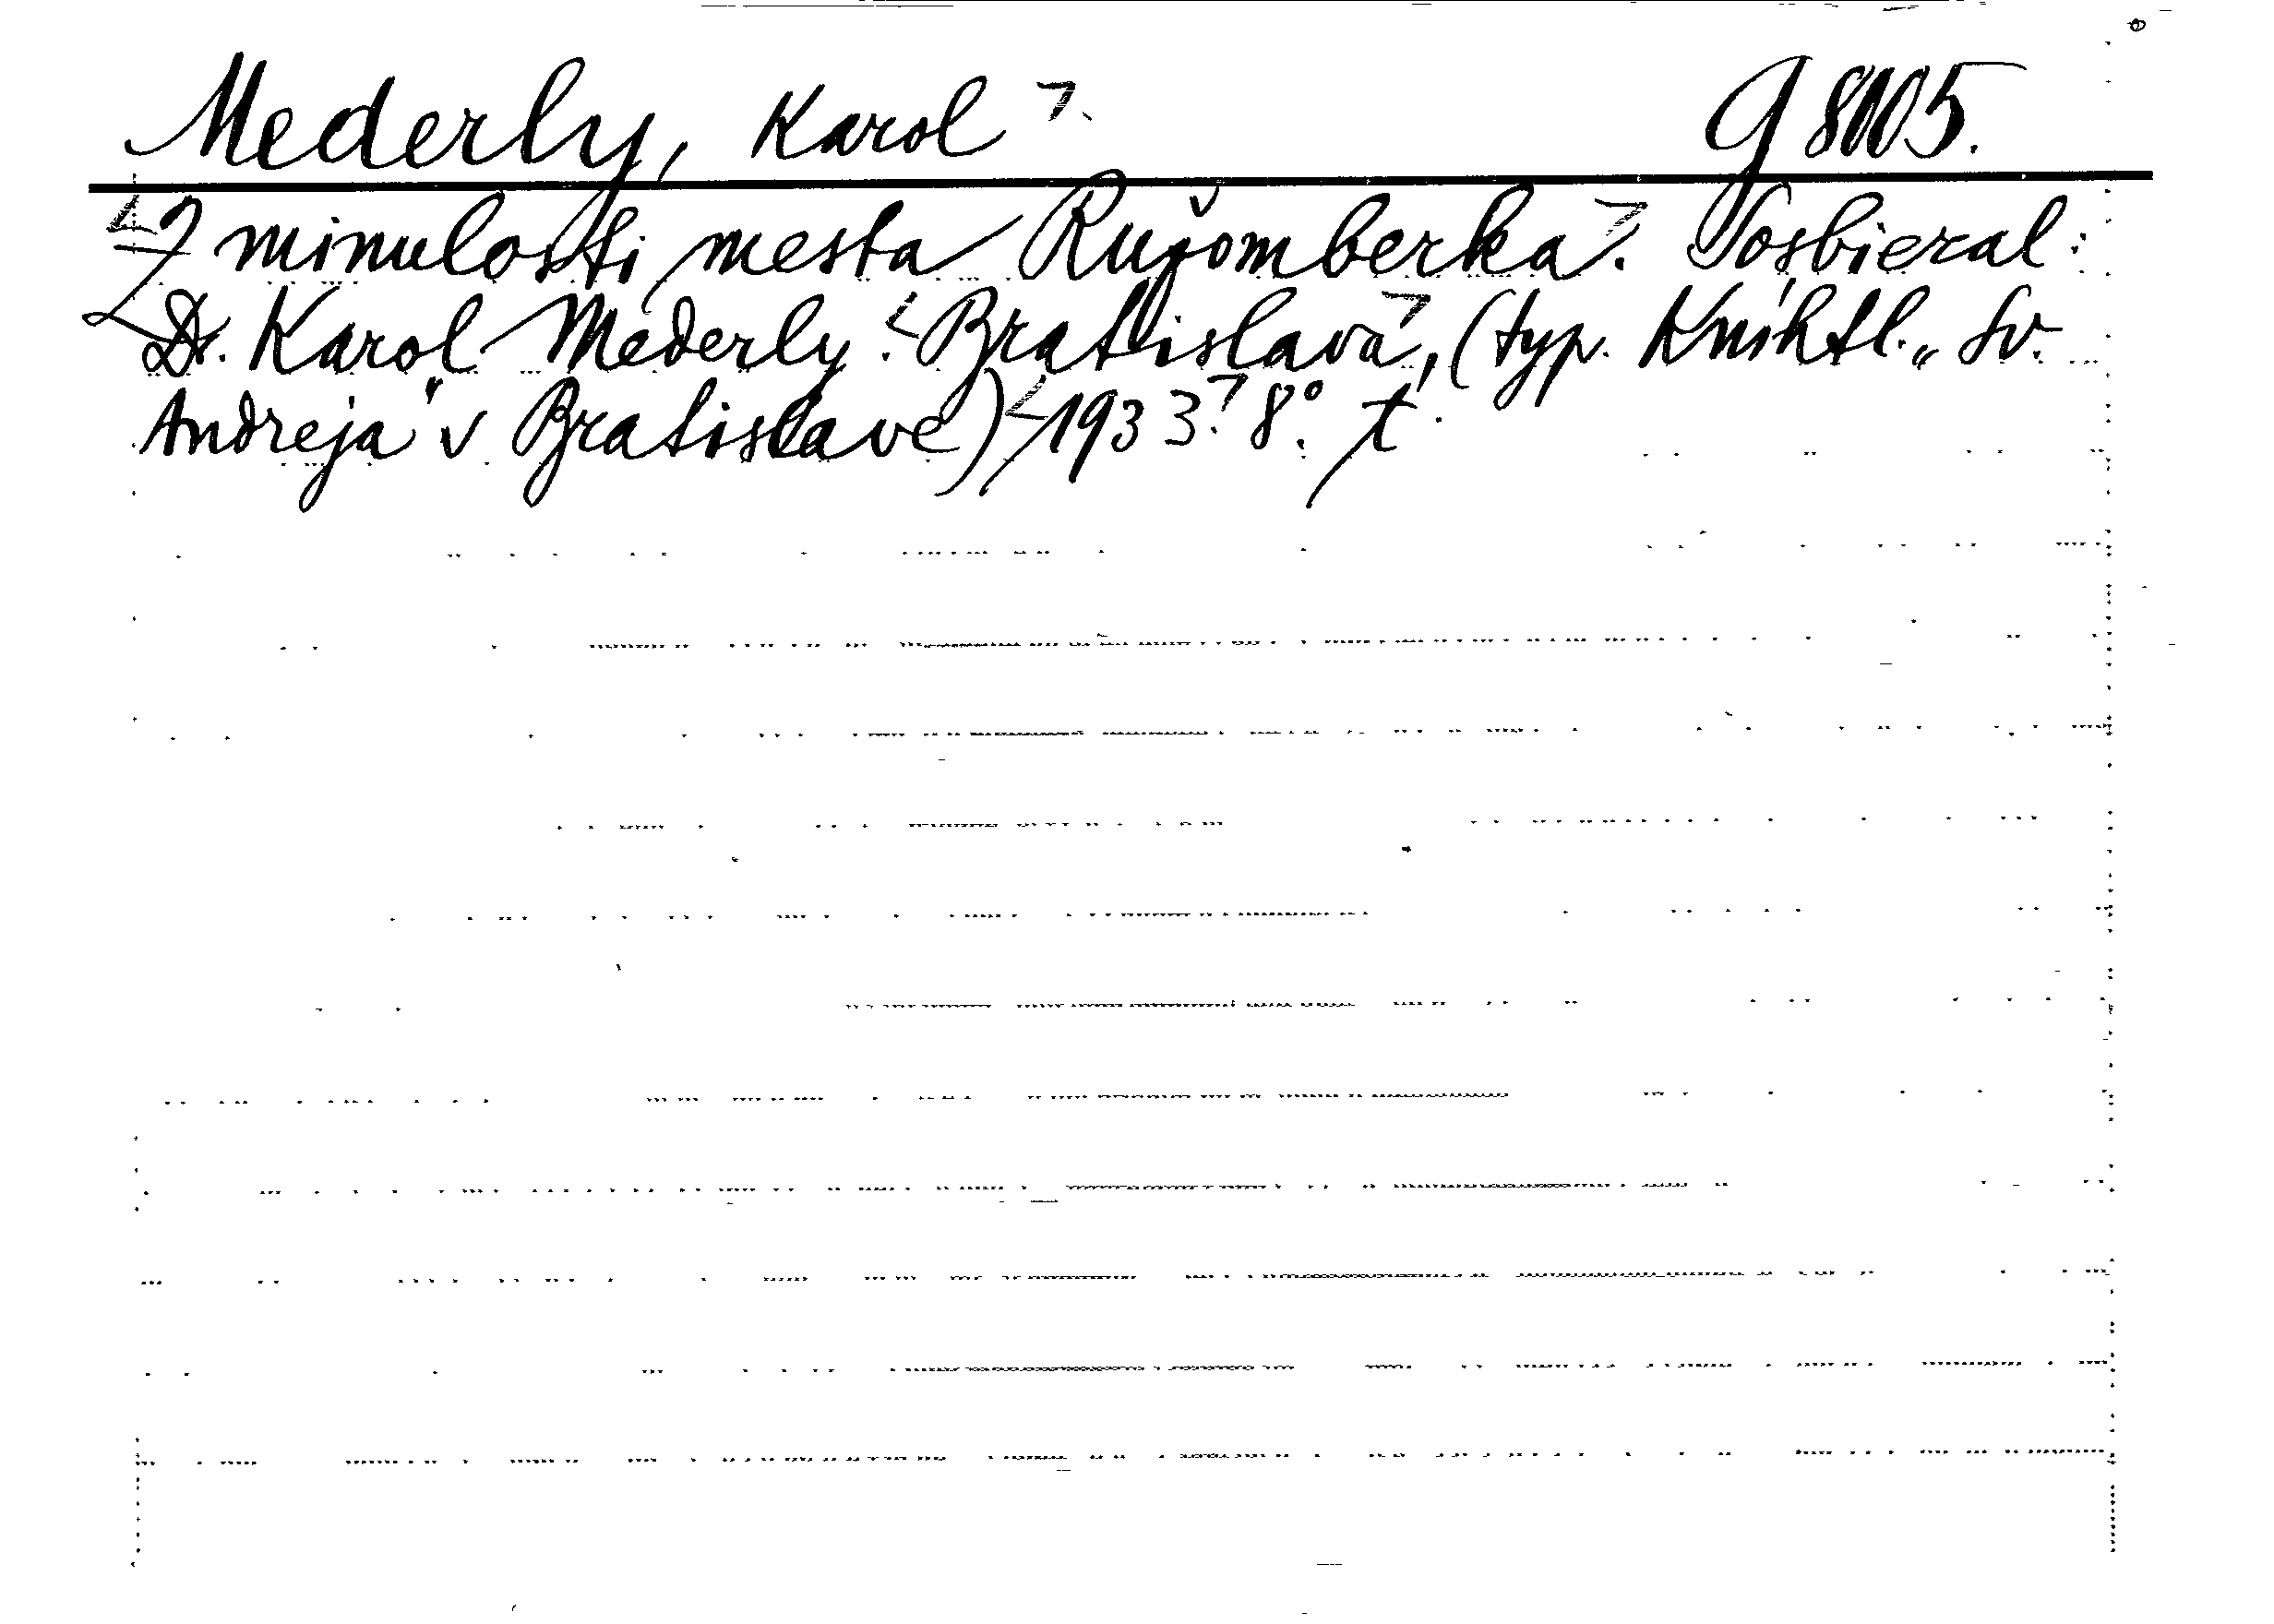 Mederly, Karol G 8005.
Z minulosti mesta Ružomberka. Sosbieral:
Dr. Karol Mederly. Bratislava, (typ. Kníhtl. „Sv.
Andreja" v Bratislave) 1933. 8°. t.